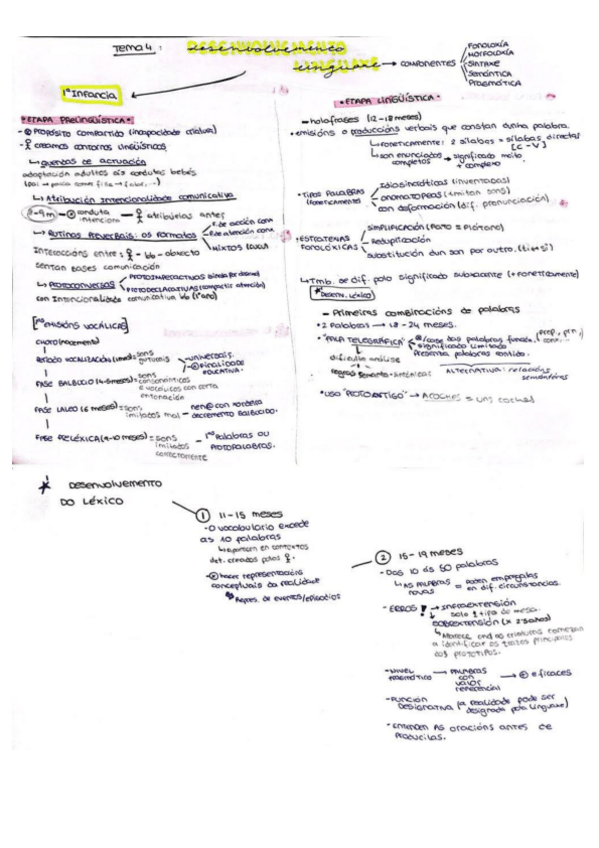 Tema 4: DESENVOLVEMENTO
LINGUAXE → COMPONENTES
FONOLOXÍA
MORFOLOXÍA
SINTAXE
SEMÁNTICA
PRAGMÁTICA
1ª Infancia
• ETAPA PRELINGÜÍSTICA •
PROPÓSITO COMPARTIDO (incapacidade criatura)
- creamos contornos lingüísticos
↳ quendas de actuación
adaptación adultos ás condutas bebés
↳ Atribución Intencionalidade comunicativa
2-9m → conduta intencion. → atribúelas antes
↳ Rutinas Adverbais: os formatos
F. de acción conx.
F. de atención conx.
MIXTOS
Interaccións entre: - bb - obxecto
sentan bases comunicación
↳ Protoconversas
PROTOIMPERATIVAS
PROTODECLARATIVAS (compartir atención)
con Intencionalidade comunicativa bb (1º ano)
[1ªs EMISIÓNS VOCÁLICAS]
CHORO (nacemento)
↓
PERÍODO VOCALIZACIÓN (1 mes) = sons guturais
- universais.
FINALIDADE EDUCATIVA.
FASE BALBUCEO (4-5 meses) = consonánticos e vocálicos con certa entonación
FASE LALEO (6 meses) = sons imitados mal - nen@ con xordeira decremento balbuceo.
FASE PRELÉXICA (9-10 meses) = sons imitados correctamente - 1ªs Palabras ou PROTOPALABRAS.
• ETAPA LINGÜÍSTICA •
- holofrases (12-18 meses)
• emisións o producións verbais que constan dunha palabra.
↳ Foneticamente: 2 sílabas = sílabas directas [C-V]
↳ son enunciados completos → significado moito + complexo
• TIPOS PALABRAS (Foneticamente)
Idiosincráticas (inventadas)
onomatopeas (imitan sons)
con deformación (dif. pronunciación)
• ESTRATEXIAS FONOLÓXICAS
SIMPLIFICACIÓN (Pato = Plátano)
Reduplicación
Substitución dun son por outro.
↳ Tmb. se dif. polo significado subxacente (+ foneticamente)
* Desenv. Léxico
- Primeiras combinacións de palabras
• 2 palabras → 18-24 meses.
• "FALA TELEGRÁFICA"
significado limitado
Presenta palabras contido.
dificulta análise
ALTERNATIVA: relacións semánticas
• USO "PROTOARTIGO" → ACOCHES = uns coches
* DESENVOLVEMENTO
DO LÉXICO
① 11-15 meses
- O vocabulario excede
as 10 palabras
↳ aparecen en contextos
det. creados polos
- hacer representacións
conceptuais da realidade
Repres. de eventos/episodios
② 15-19 meses
- Das 10 ás 50 palabras
↳ AS PALABRAS novas = poden empregalas en dif. circunstancias.
- ERROS! → INFRAEXTENSIÓN
solo 1 tipo de mesa.
SOBREEXTENSIÓN (x 2 anos)
↳ Aparece cando as criaturas comezan
a identificar os trazos principais
dos prototipos.
- NIVEL PRAGMÁTICO → PALABRAS CON VALOR REFERENCIAL → + eficaces
- FUNCIÓN DESIGNATIVA (a realidade pode ser designada pola linguaxe)
- ENTENDEN AS oracións antes de
producilas.